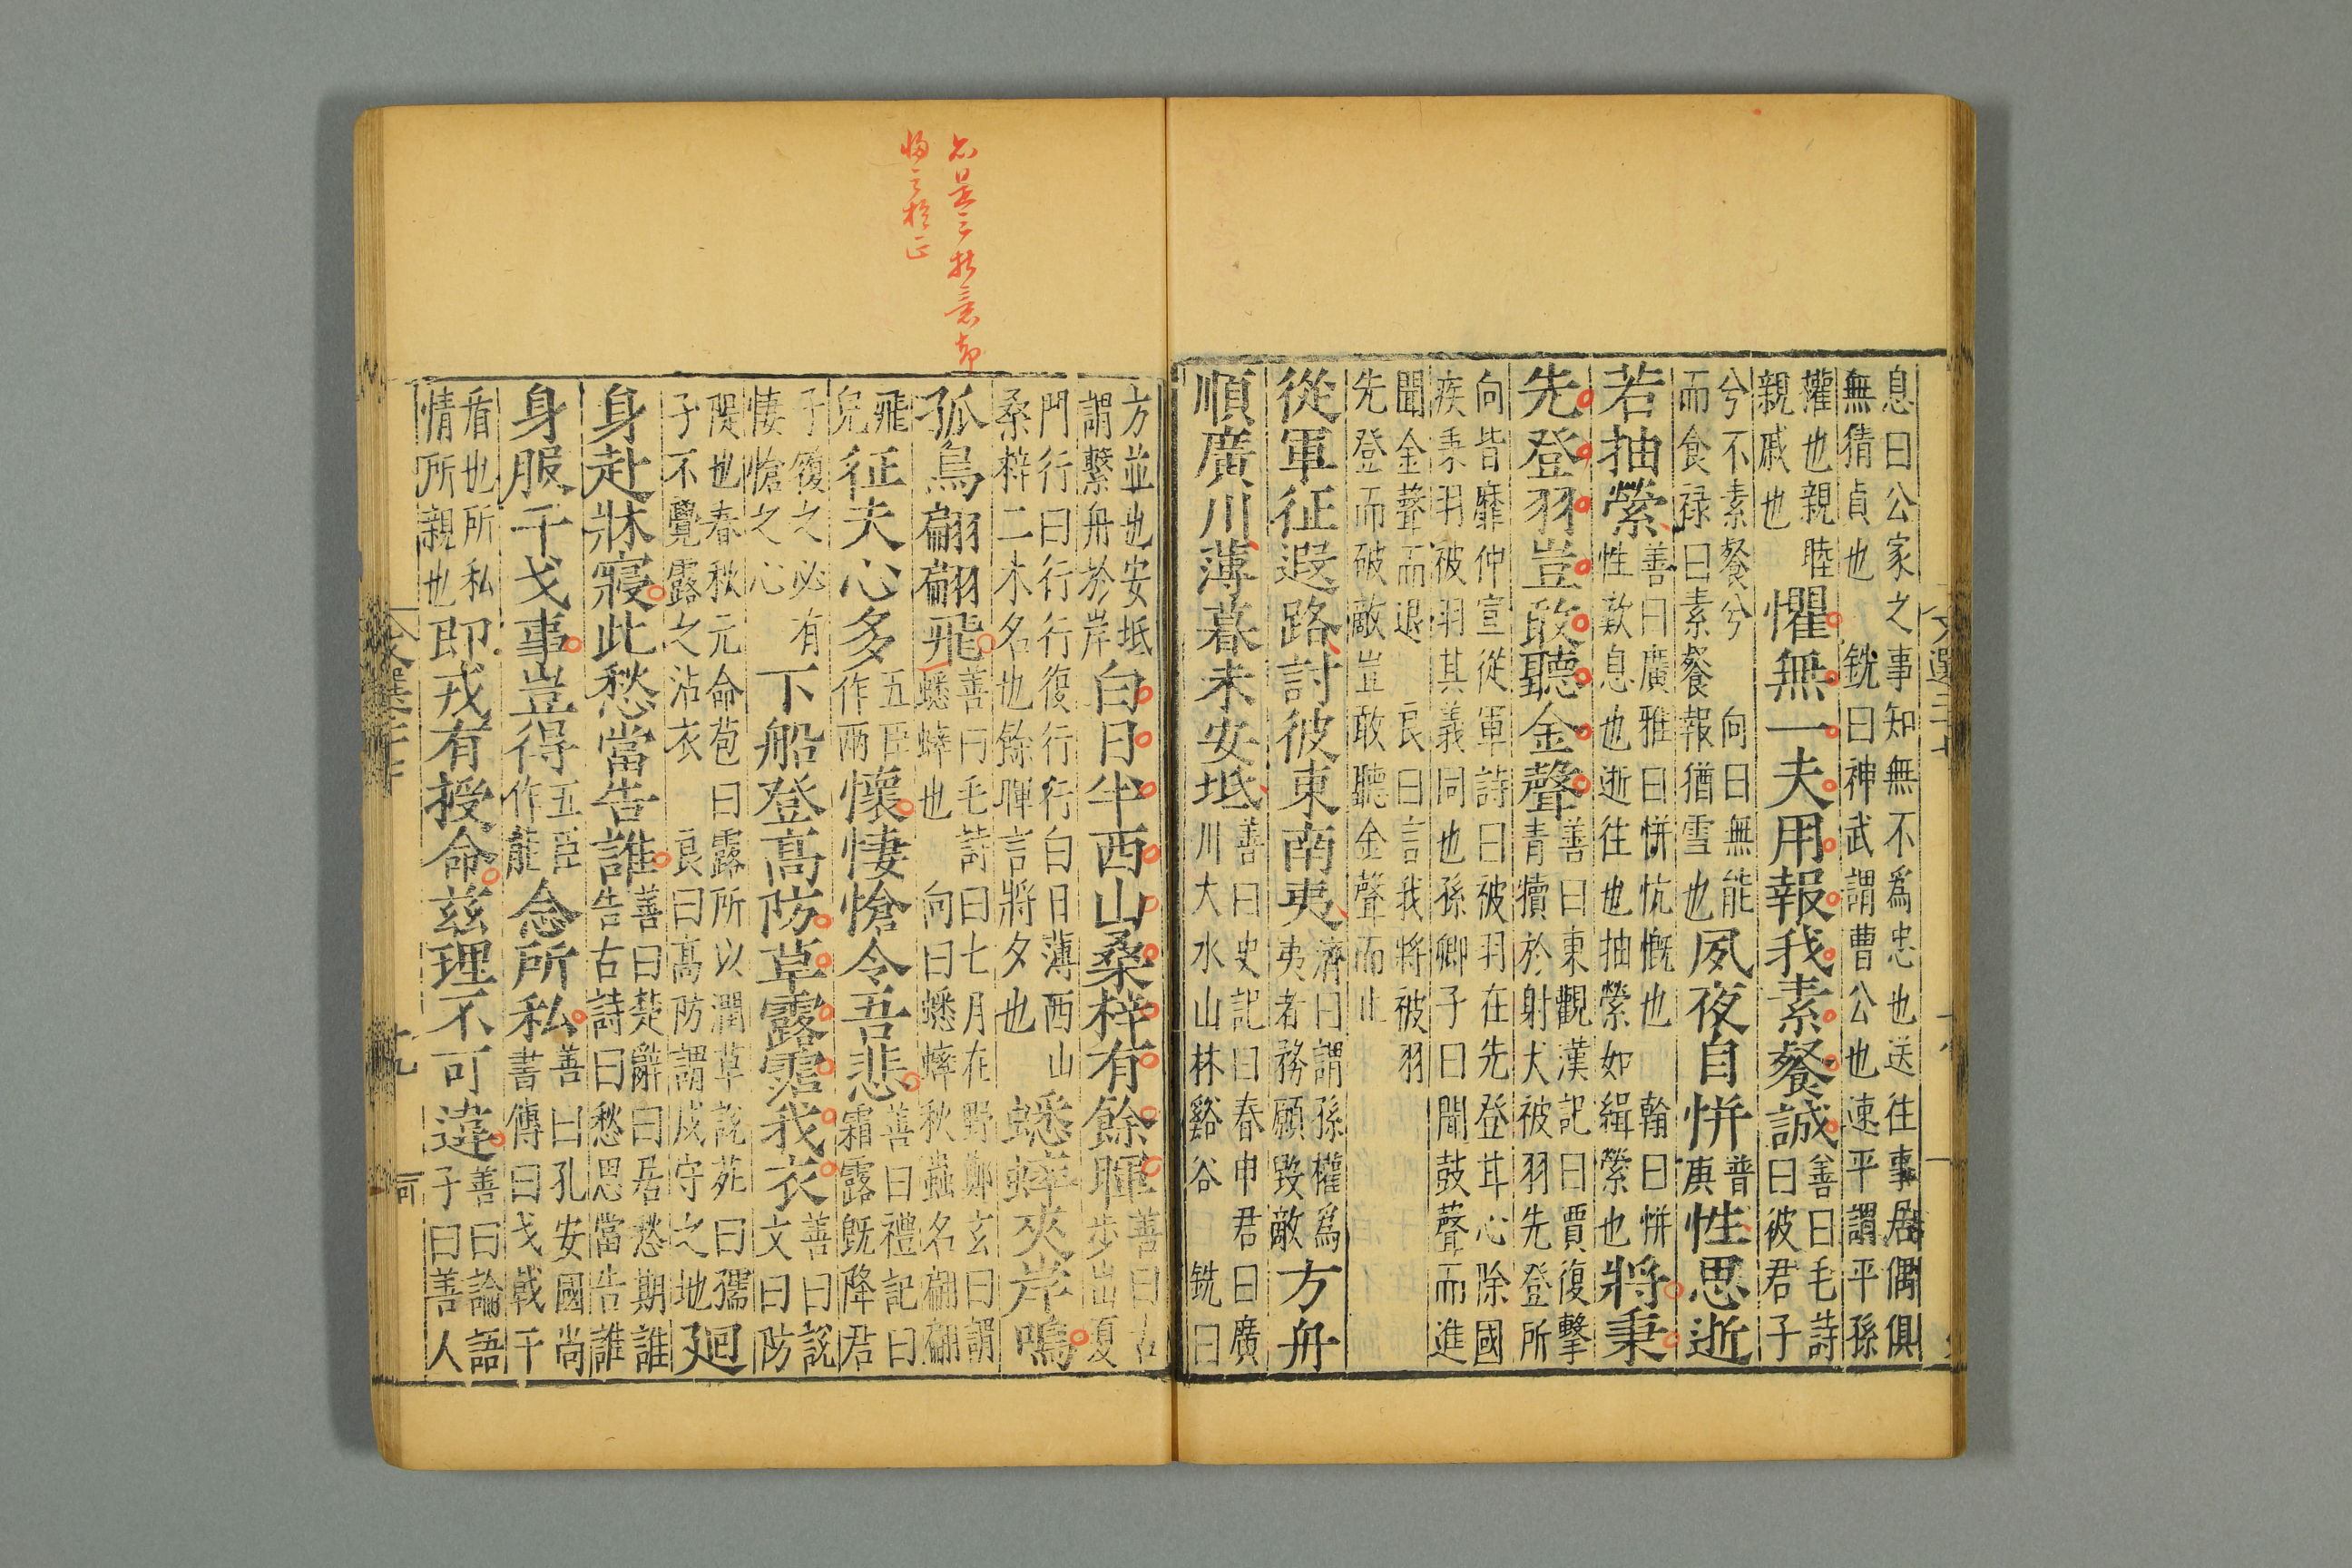 息曰公家之事知無不爲忠也送往事居偶俱
無猜貞也銑曰神武謂曹公也速平謂平孫
權也親睦
親戚也
懼無一夫用報我素餐誠
善曰毛詩
曰彼君子
兮不素餐兮向曰無能
而食禄曰素餐報猶雪也
夙夜自恲
普
庚
性思逝
若抽縈
善曰廣雅曰恲忼慨也翰曰恲
性歎息也逝往也抽縈如緝縈也
將秉
先登羽豈敢聽金聲
善曰東觀漢記曰賈復擊
青犢於射犬被羽先登所
向皆靡仲宣從軍詩曰被羽在先登耳心除國
疾秉羽被羽其義同也孫卿子曰聞鼓聲而進
聞金聲而退良曰言我將被羽
先登而破敵豈敢聽金聲而止
從軍征遐路討彼東南夷
濟曰謂孫權爲
夷者務願毀敵
方舟
順廣川薄暮未安坻
善曰史記曰春申君曰廣
川大水山林谿谷銑曰
方並也安坻
謂繫舟於岸
白日半西山桑梓有餘暉
善曰古
步出夏
門行曰行行復行行白日薄西山
桑梓二木名也餘暉言將夕也
蟋蟀夾岸鳴
孤鳥翩翩飛
善曰毛詩曰七月在野鄭玄曰謂
蟋蟀也向曰蟋蟀秋蟲名翩翩
飛
皃
征夫心多
五臣
作兩
懷悽愴令吾悲
善曰禮記曰
霜露旣降君
子履之必有
悽愴之心
下船登高防草露霑我衣
善曰說
文曰防
隄也春秋元命苞曰露所以潤草說苑曰孺
子不覺露之沾衣良曰高防謂戍守之地
廻
身赴牀寢此愁當告誰
善曰楚辭曰居愁期誰
告古詩曰愁思當告誰
身服干戈事豈得
五臣
作龍
念所私
善曰孔安國尚
書傳曰戈戟干
盾也所私
情所親也
即戎有授命兹理不可違
善曰論語
子曰善人